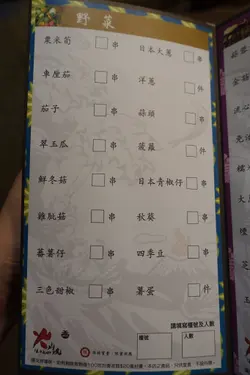 野菜
粟米筍 串 日本大葱 串
車厘茄 串 洋葱 件
茄子 串 蒜頭 串
翠玉瓜 串 菠蘿 件
鮮冬菇 串 日本青椒仔 串
雞髀菇 串 秋葵 串
蕃薯仔 串 四季豆 串
三色甜椒 串 薯蛋 件
請填寫檯號及人數
檯號 人數